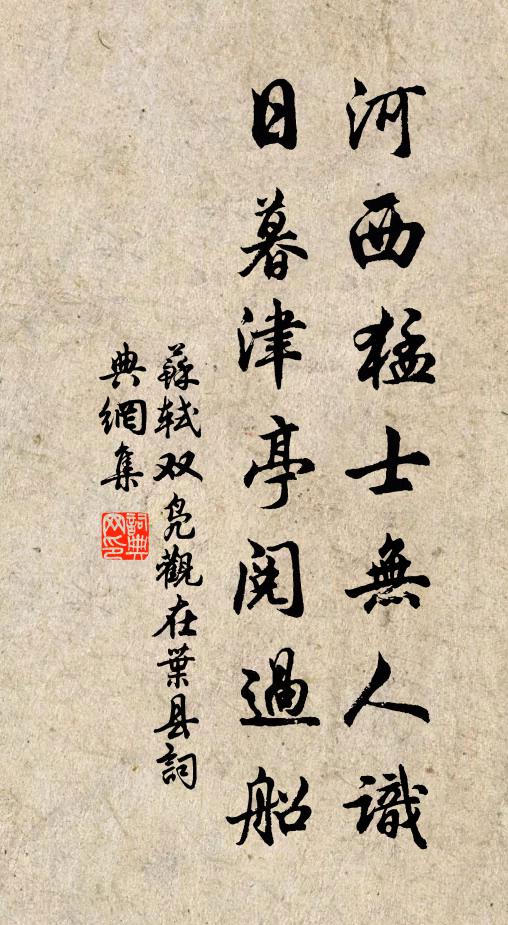 河西猛士無人識
日暮津亭閱過船
蘇軾双鳧觀在葉县詞
典網集
詞典
网印